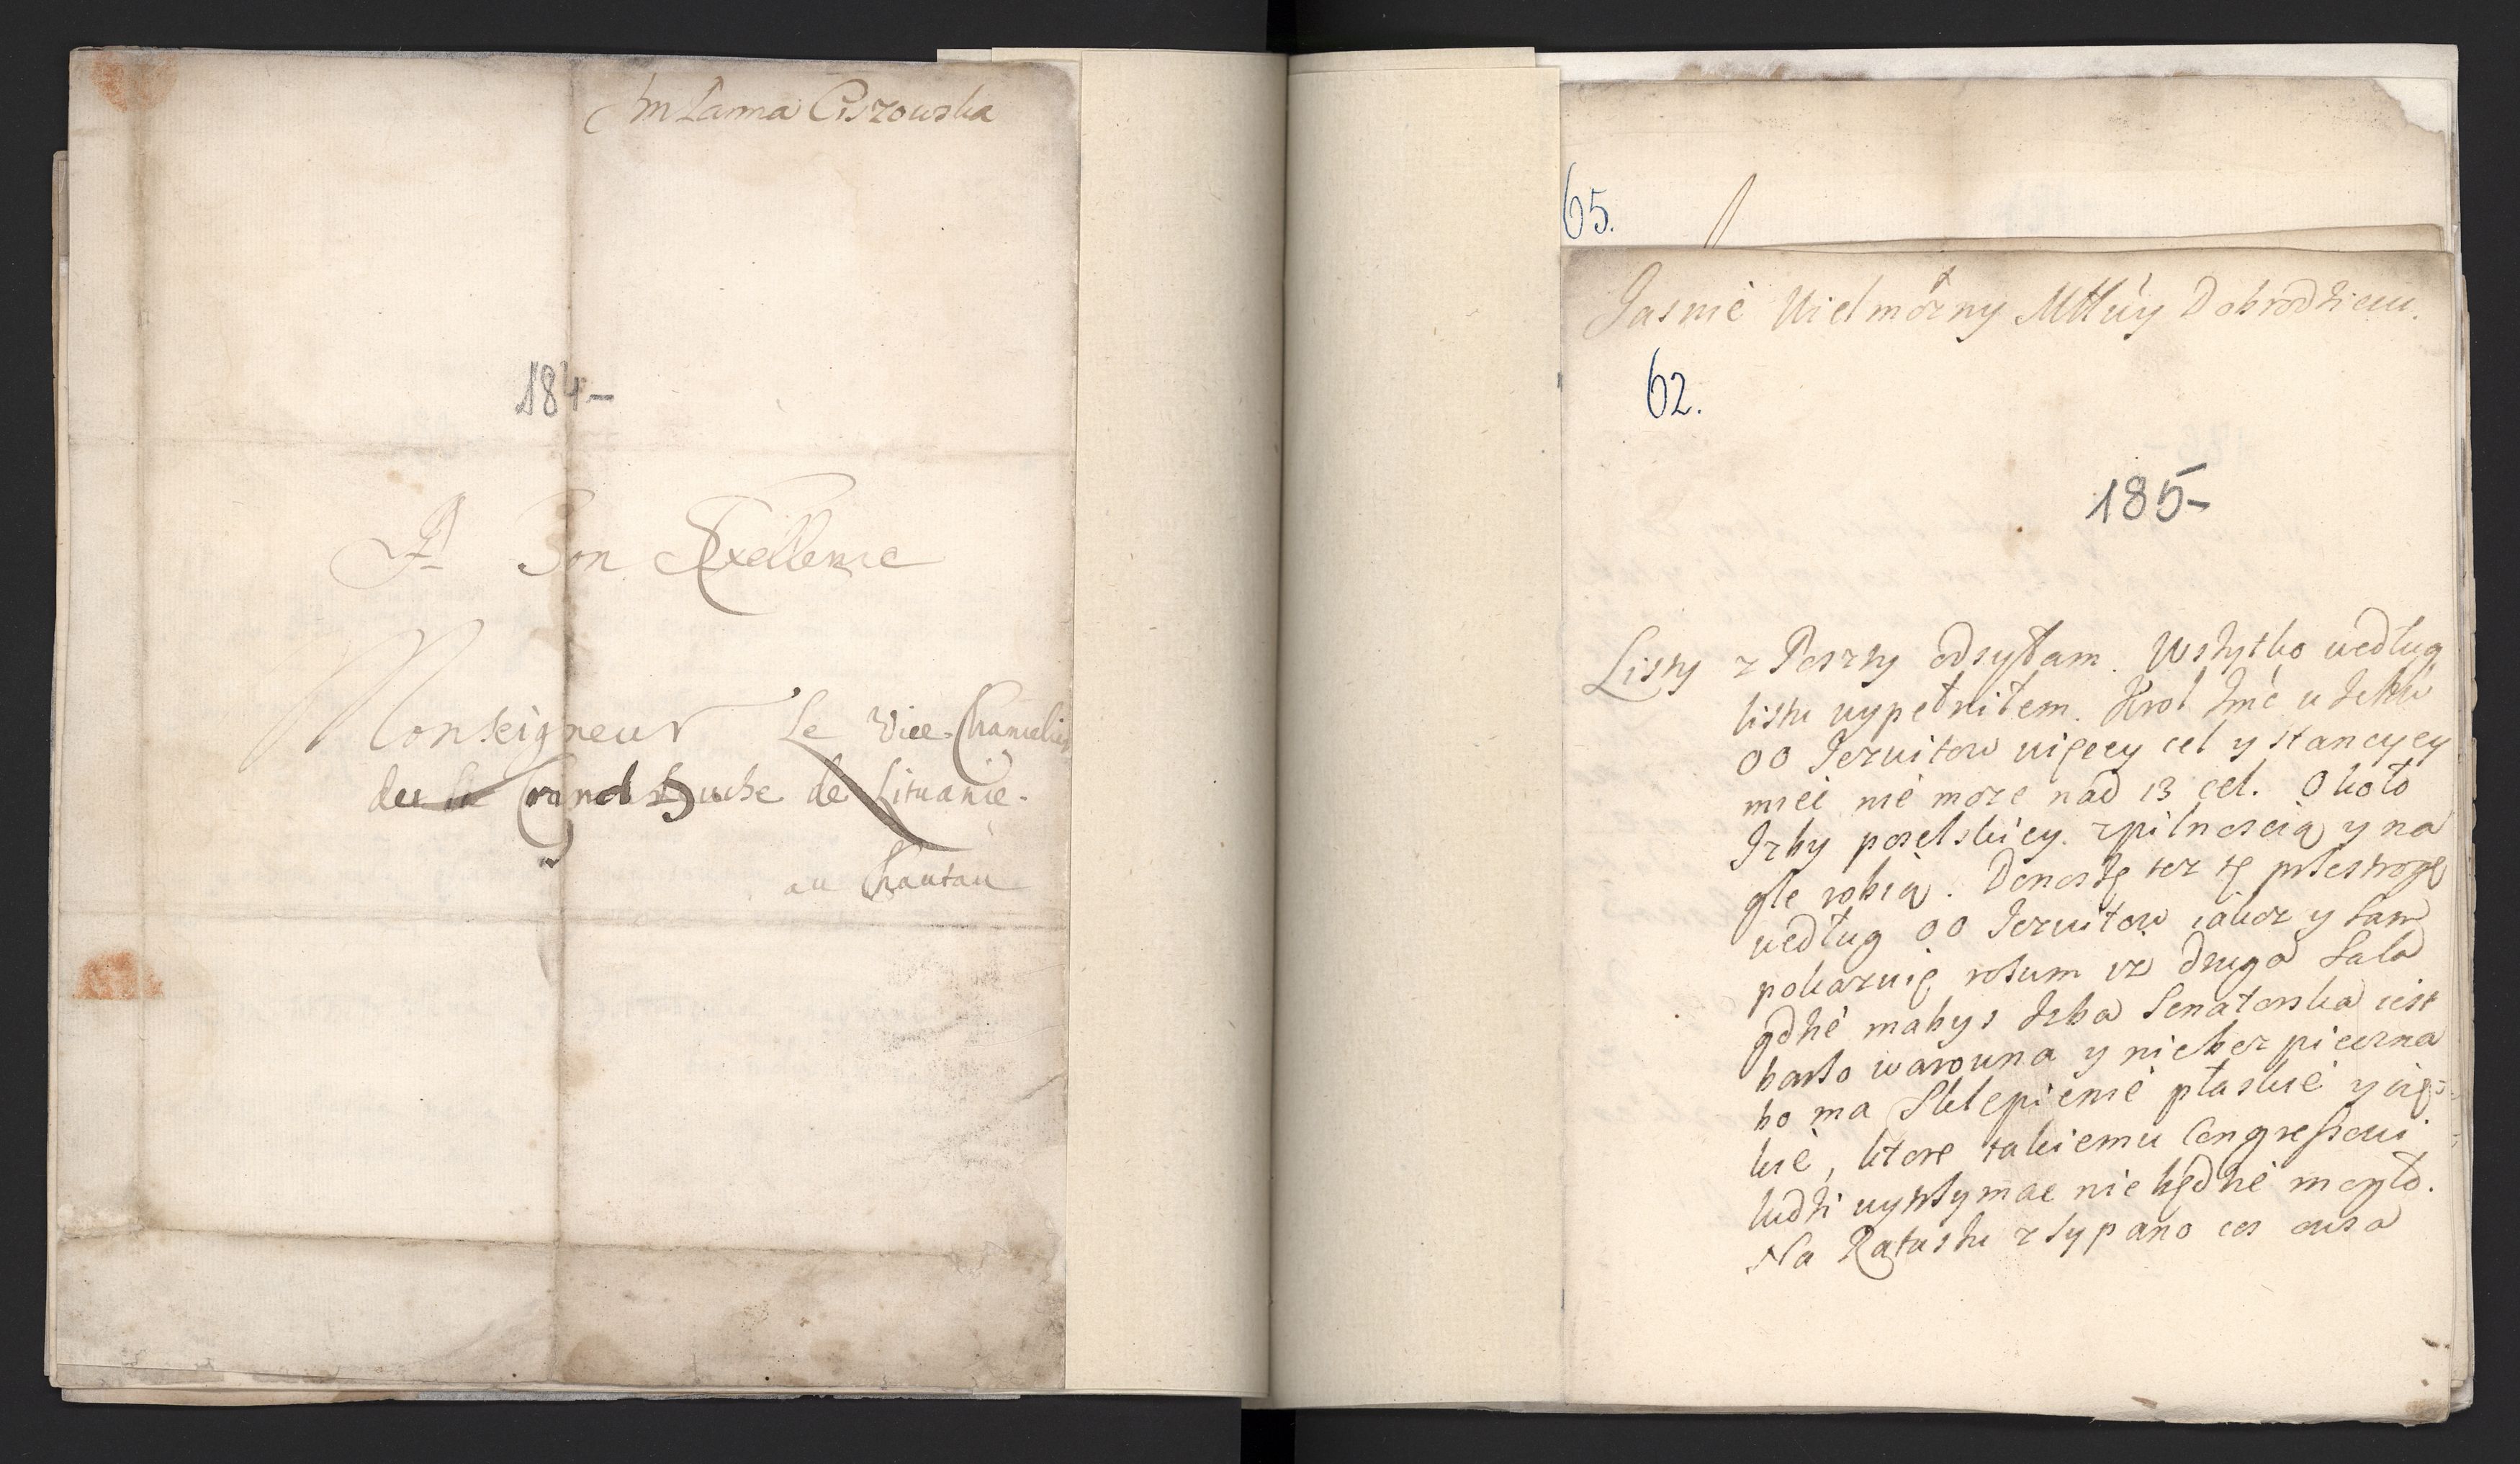 Jm Panna Ciszowska
184-
A Son Exellence
Monseigneur Le Vice-Chancelier
du Grand Duche de Lituanie.
au Chautau
65.
Jasnie Wielmożny Mttuy Dobrodzieiu.
62.
185-
Listy z Poszty odsyłam. Wszytko według
listu wypełniłem. Krol Jmć u
OO Jezuitow więcey cel y stancycy
miec nie może nad 13 cel. Około
Jzby poselskiey. z pilnoscią y na
głe robią. Donoszę też tę przestrogę
według OO Jezuitow iakoż y sam
pokazuię rozum iż druga Sala
gdzie ma bys Jzba Senatorska iest
barzo warowna y niebezpieczna
bo ma Sklepienie płaskie y cięż-
kie, ktore takiemu Congressowi
ludzi wytrzymac nie będzie mogło.
Na Ratuszu zsypano cos owsa